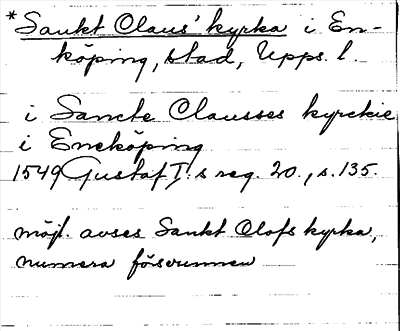 *Sankt Claus' kyrka i En-
köping, stad, Upps. l.
i Sancte Clausses kyrckie
i Eneköping
1549 Gustaf I:s reg. 20., s. 135.
möjl. avses Sankt Olofs kyrka,
numera försvunnen